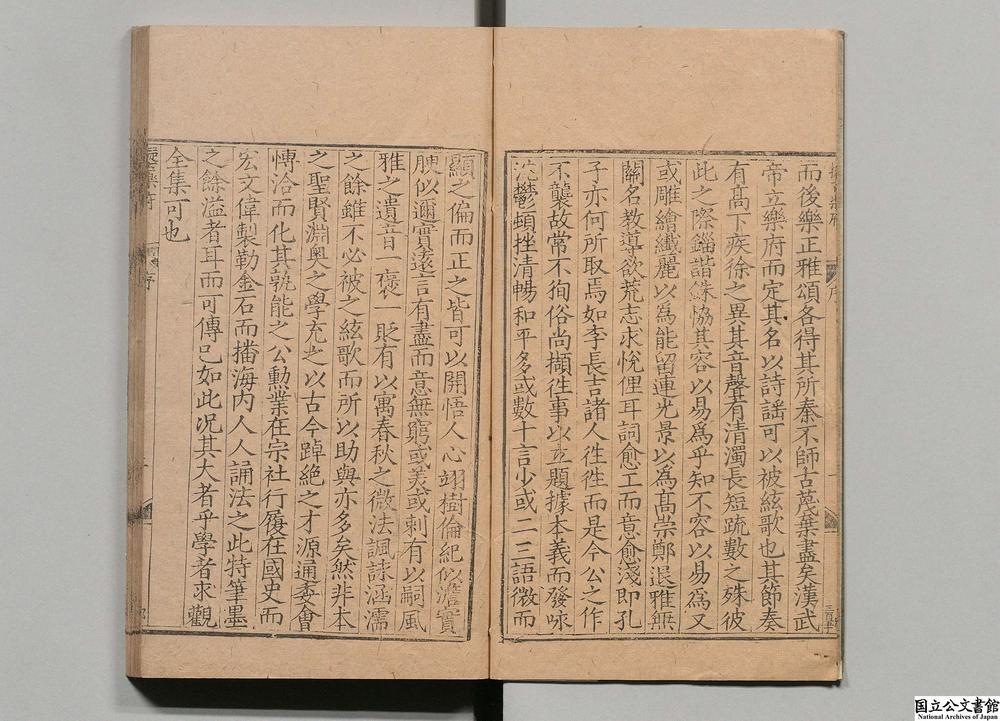 而後樂正雅頌各得其所秦不師古蔑棄盡矣漢武
帝立樂府而定其名以詩謠可以被絃歌也其節奏
有高下疾徐之異其音聲有清濁長短疏數之殊彼
此之際錙諧銖協其容以易爲乎知不容以易爲又
或雕繪纖麗以爲能留連光景以爲髙崇鄭退雅無
關名教導欲荒志求悅俚耳詞愈工而意愈淺即孔
子亦何所取焉如李長吉諸人徃徃而是今公之作
不襲故常不徇俗尚擷徃事以立題據本義而發咏
沈鬱頓挫清暢和平多或數十言少或二三語微而
顯之偏而正之皆可以開悟人心翊樹倫紀似澹實
腴似邇實遠言有盡而意無窮或美或刺有以嗣風
雅之遺音一褒一貶有以寓春秋之微法諷詠涵濡
之餘雖不必被之絃歌而所以助與亦多矣然非本
之聖賢淵奥之學充之以古今踔絶之才源通委會
慱洽而化其孰能之公勲業在宗社行履在國史而
宏文偉製勒金石而播海内人人誦法之此特筆墨
之餘溢者耳而可傳已如此况其大者乎學者求觀
全集可也
擬古樂府
序
國立公文書館
National Archives of Japan